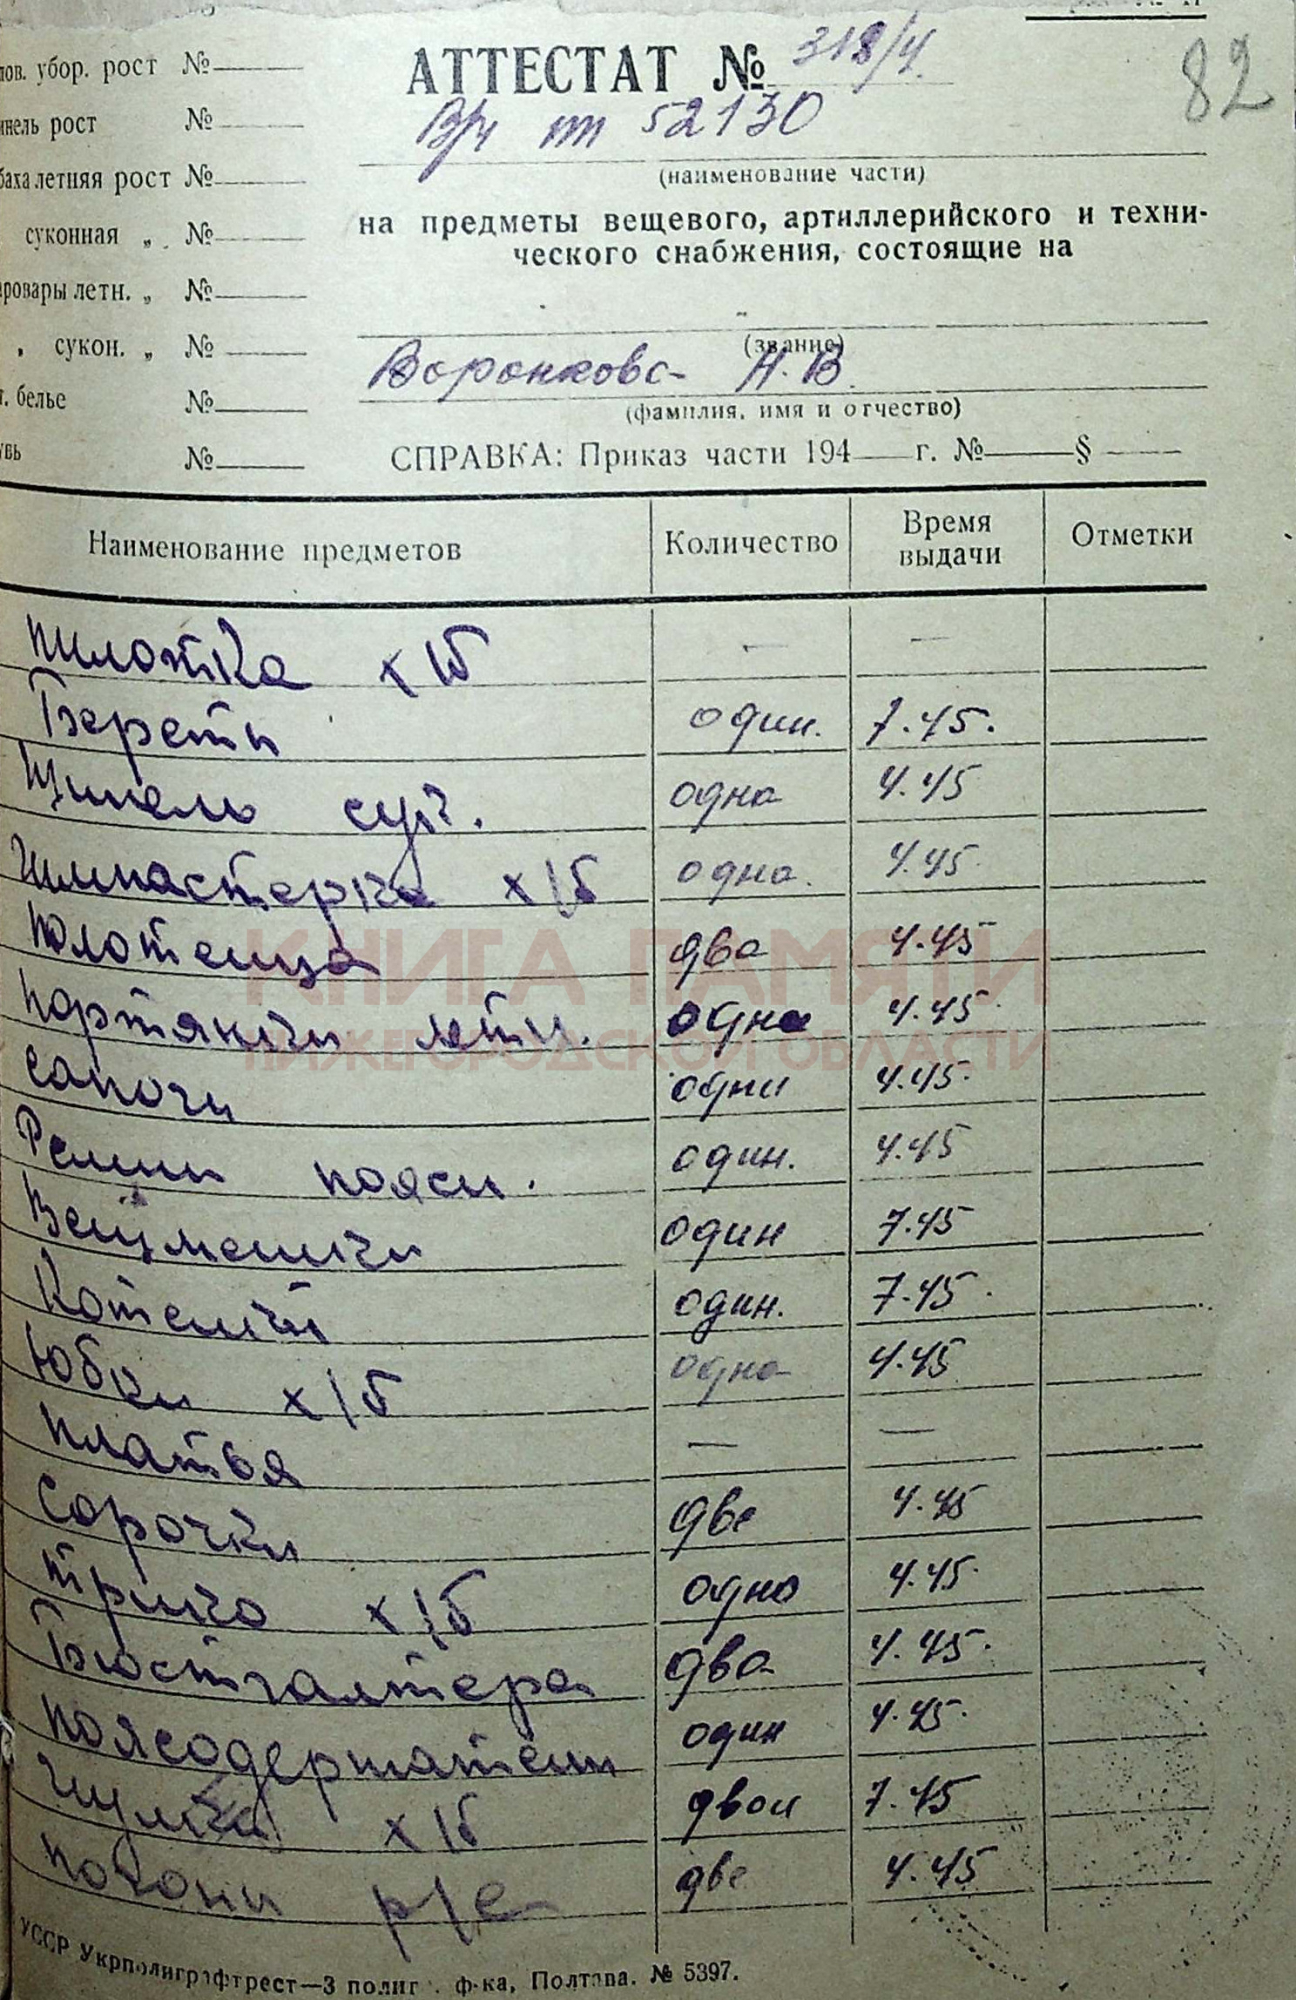 82
АТТЕСТАТ № 318/4
пов. убор. рост №
В/ч пп 52130
инель рост №
(наименование части)
баха летняя рост №
на предметы вещевого, артиллерийского и техни-
суконная „ №
ческого снабжения, состоящие на
ровары летн. „ №
(звание)
„ сукон. „ №
Воронкова Н.В.
т. белье №
(фамилия, имя и отчество)
увь №
СПРАВКА: Приказ части 194 г. № §
Наименование предметов Количество Время выдачи Отметки
пилотка х/б — —
Береты один. 7.45.
Шинель одна 4.45
Гимнастерка х/б одна. 4.45.
Полотенца два 4.45
КНИГА ПАМЯТИ
Портянки летн. одна 4.45
НИЖЕГОРОДСКОЙ ОБЛАСТИ
сапоги одни 4.45.
Ремни поясн. один. 4.45
Вещмешки один 7.45
Котелки один. 7.45.
Юбки х/б одна 4.45
платья — —
Сорочки две 4.45
трико х/б одно 4.45.
Бюстгалтера два 4.45.
поясодержатели один 4.45.
чулки х/б двои 7.45
погоны две 4.45
УССР Укрполиграфтрест—3 полиг. ф-ка, Полтава. № 5397.